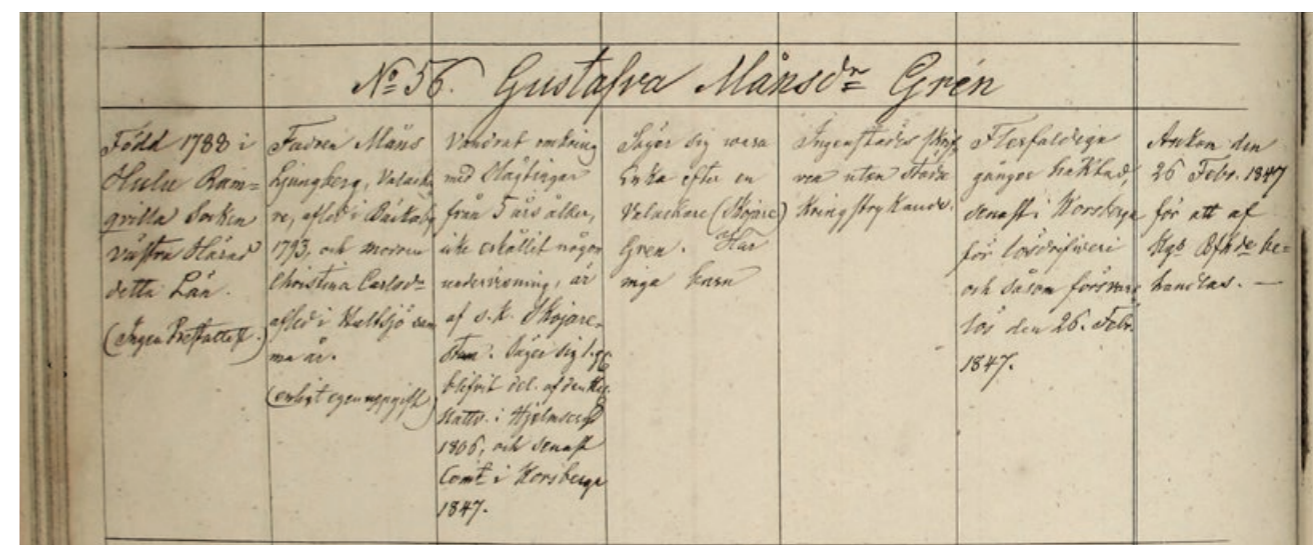 No 56. Gustafva Månsdr Grén
Född 1788 i
Hulu Ram=
qvilla Socken
Västra Härad
detta Län.
(Ingen Prestattest.)
Fadren Måns
Ljungberg, Valacka
re, afled i Bäckaby
1793, och modren
Christina Carlsdr
afled i Hultsjö sam
ma år.
(enligt egen uppgift)
Vandrat omkring
med Slägtingar
från 5 års ålder,
icke erhållit någon
undervisning, är
af s.k. Skojare-
stam. Säger sig
blifvit del. af den Hel.
Nattv. i Hjelmseryd
1806, och senast
Comt i Korsberga
1847.
Säger sig wara
Enka efter en
Valackare (Skojare)
Gren. Har
inga barn
Ingenstädes skrif-
ven utan städse
Kringstrykande.
Flerfaldiga
gånger häktad,
senast i Korsberga
för lösdrifveri
och såsom försvars
lös den 26. Febr.
1847.
Ankom den
26 Febr. 1847
för att af
Kgs Bfhde be=
handlas. —